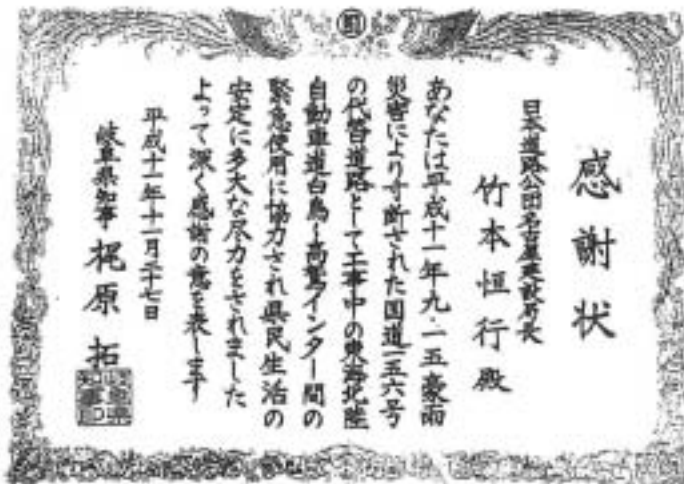 感謝状
日本道路公団名古屋建設局長
竹本恒行殿
あなたは平成十一年九・一五豪雨
災害により寸断された国道一五六号
の代替道路として工事中の東海北陸
自動車道白鳥~高鷲インター間の
緊急使用に協力され県民生活の
安定に多大な尽力をされました
よって深く感謝の意を表します
平成十一年十一月二十七日
岐阜県知事 梶原拓